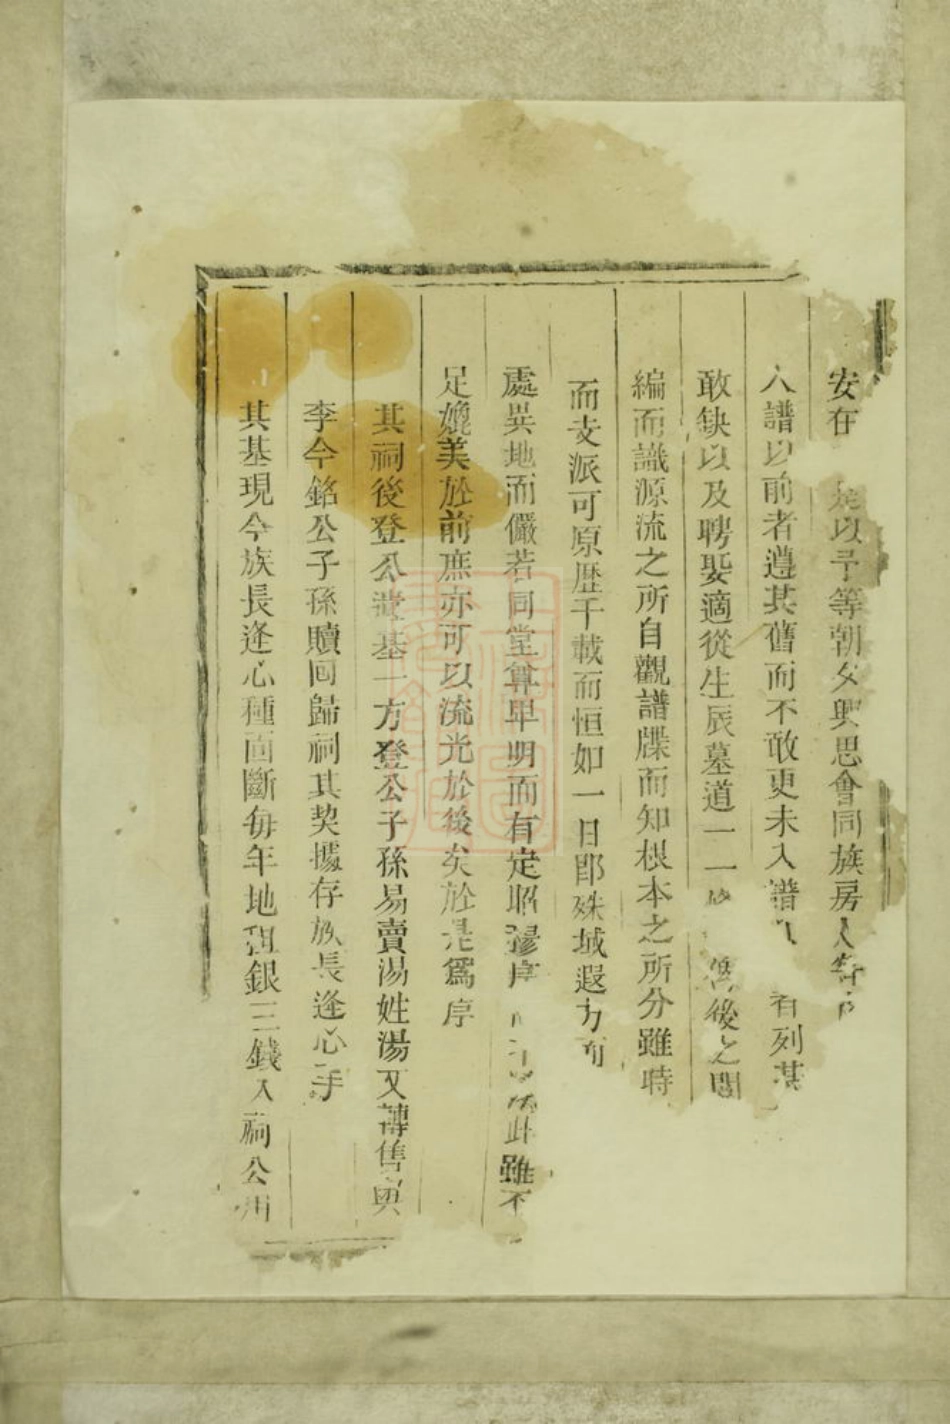 安在是以予等朝夕興思會同族房人等
入譜以前者遵其舊而不敢更未入譜者列其
敢缺以及聘娶適從生辰墓道一一後之閱
編而識源流之所自觀譜牒而知根本之所分雖時
而支派可原歷千載而恒如一日即殊域遐方而
處異地而儼若同堂尊卑明而有定昭穆序此雖不
足媲美於前庶亦可以流光於後矣於是為序
其祠後登公遺基一方登公子孫易賣湯姓湯又轉售與
李今銘公子孫贖回歸祠其契據存族長逢心手
其基現今族長逢心種面斷每年地租銀三錢入祠公用